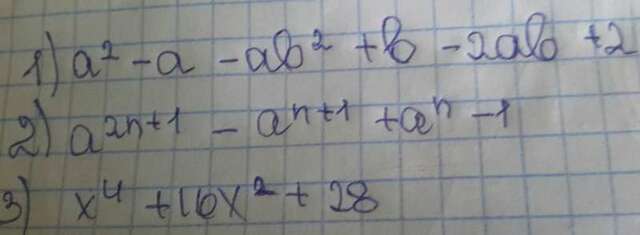 1) a² - a - ab² + b - 2ab + 2
2) a²ⁿ⁺¹ - aⁿ⁺¹ + aⁿ - 1
3) x⁴ + 16x² + 28